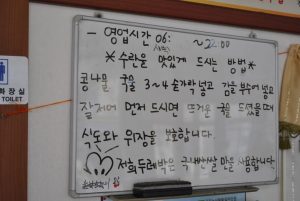 - 영업시간 06: ~22:00
*수란을 맛있게 드시는 방법*
콩나물 국물 3~4 숟가락 넣고 김을 부수어 넣고
잘 저어 먼저 드시면 뜨거운 국물 드셨을 때
식도와 위장을 보호합니다.
저희 두레박은 국내산 쌀 만을 사용합니다
화장실
TOILET